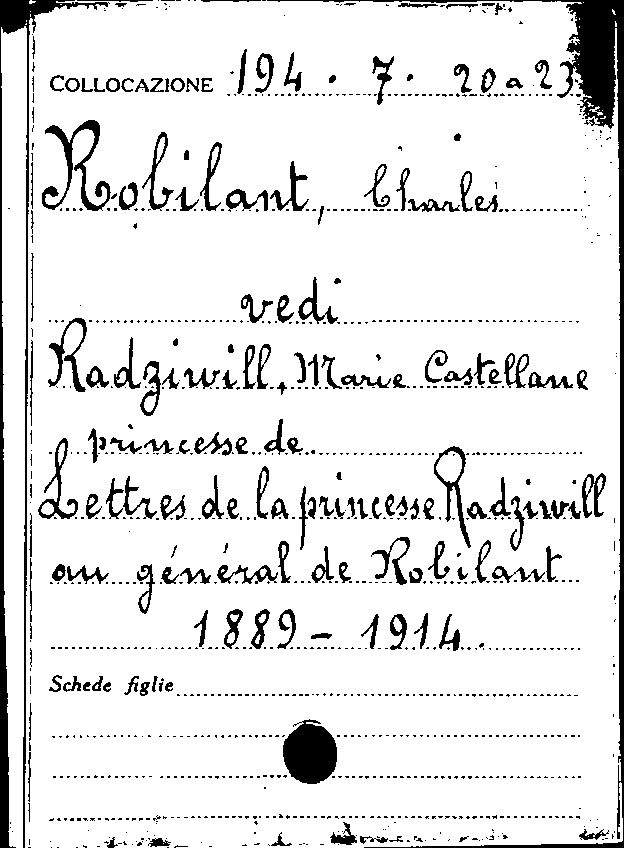 COLLOCAZIONE 194 . 7 . 20 a 23
Robilant, Charles
vedi
Radziwill, Marie Castellane
princesse de.
Lettres de la princesse Radziwill
au général de Robilant
1889 - 1914.
Schede figlie